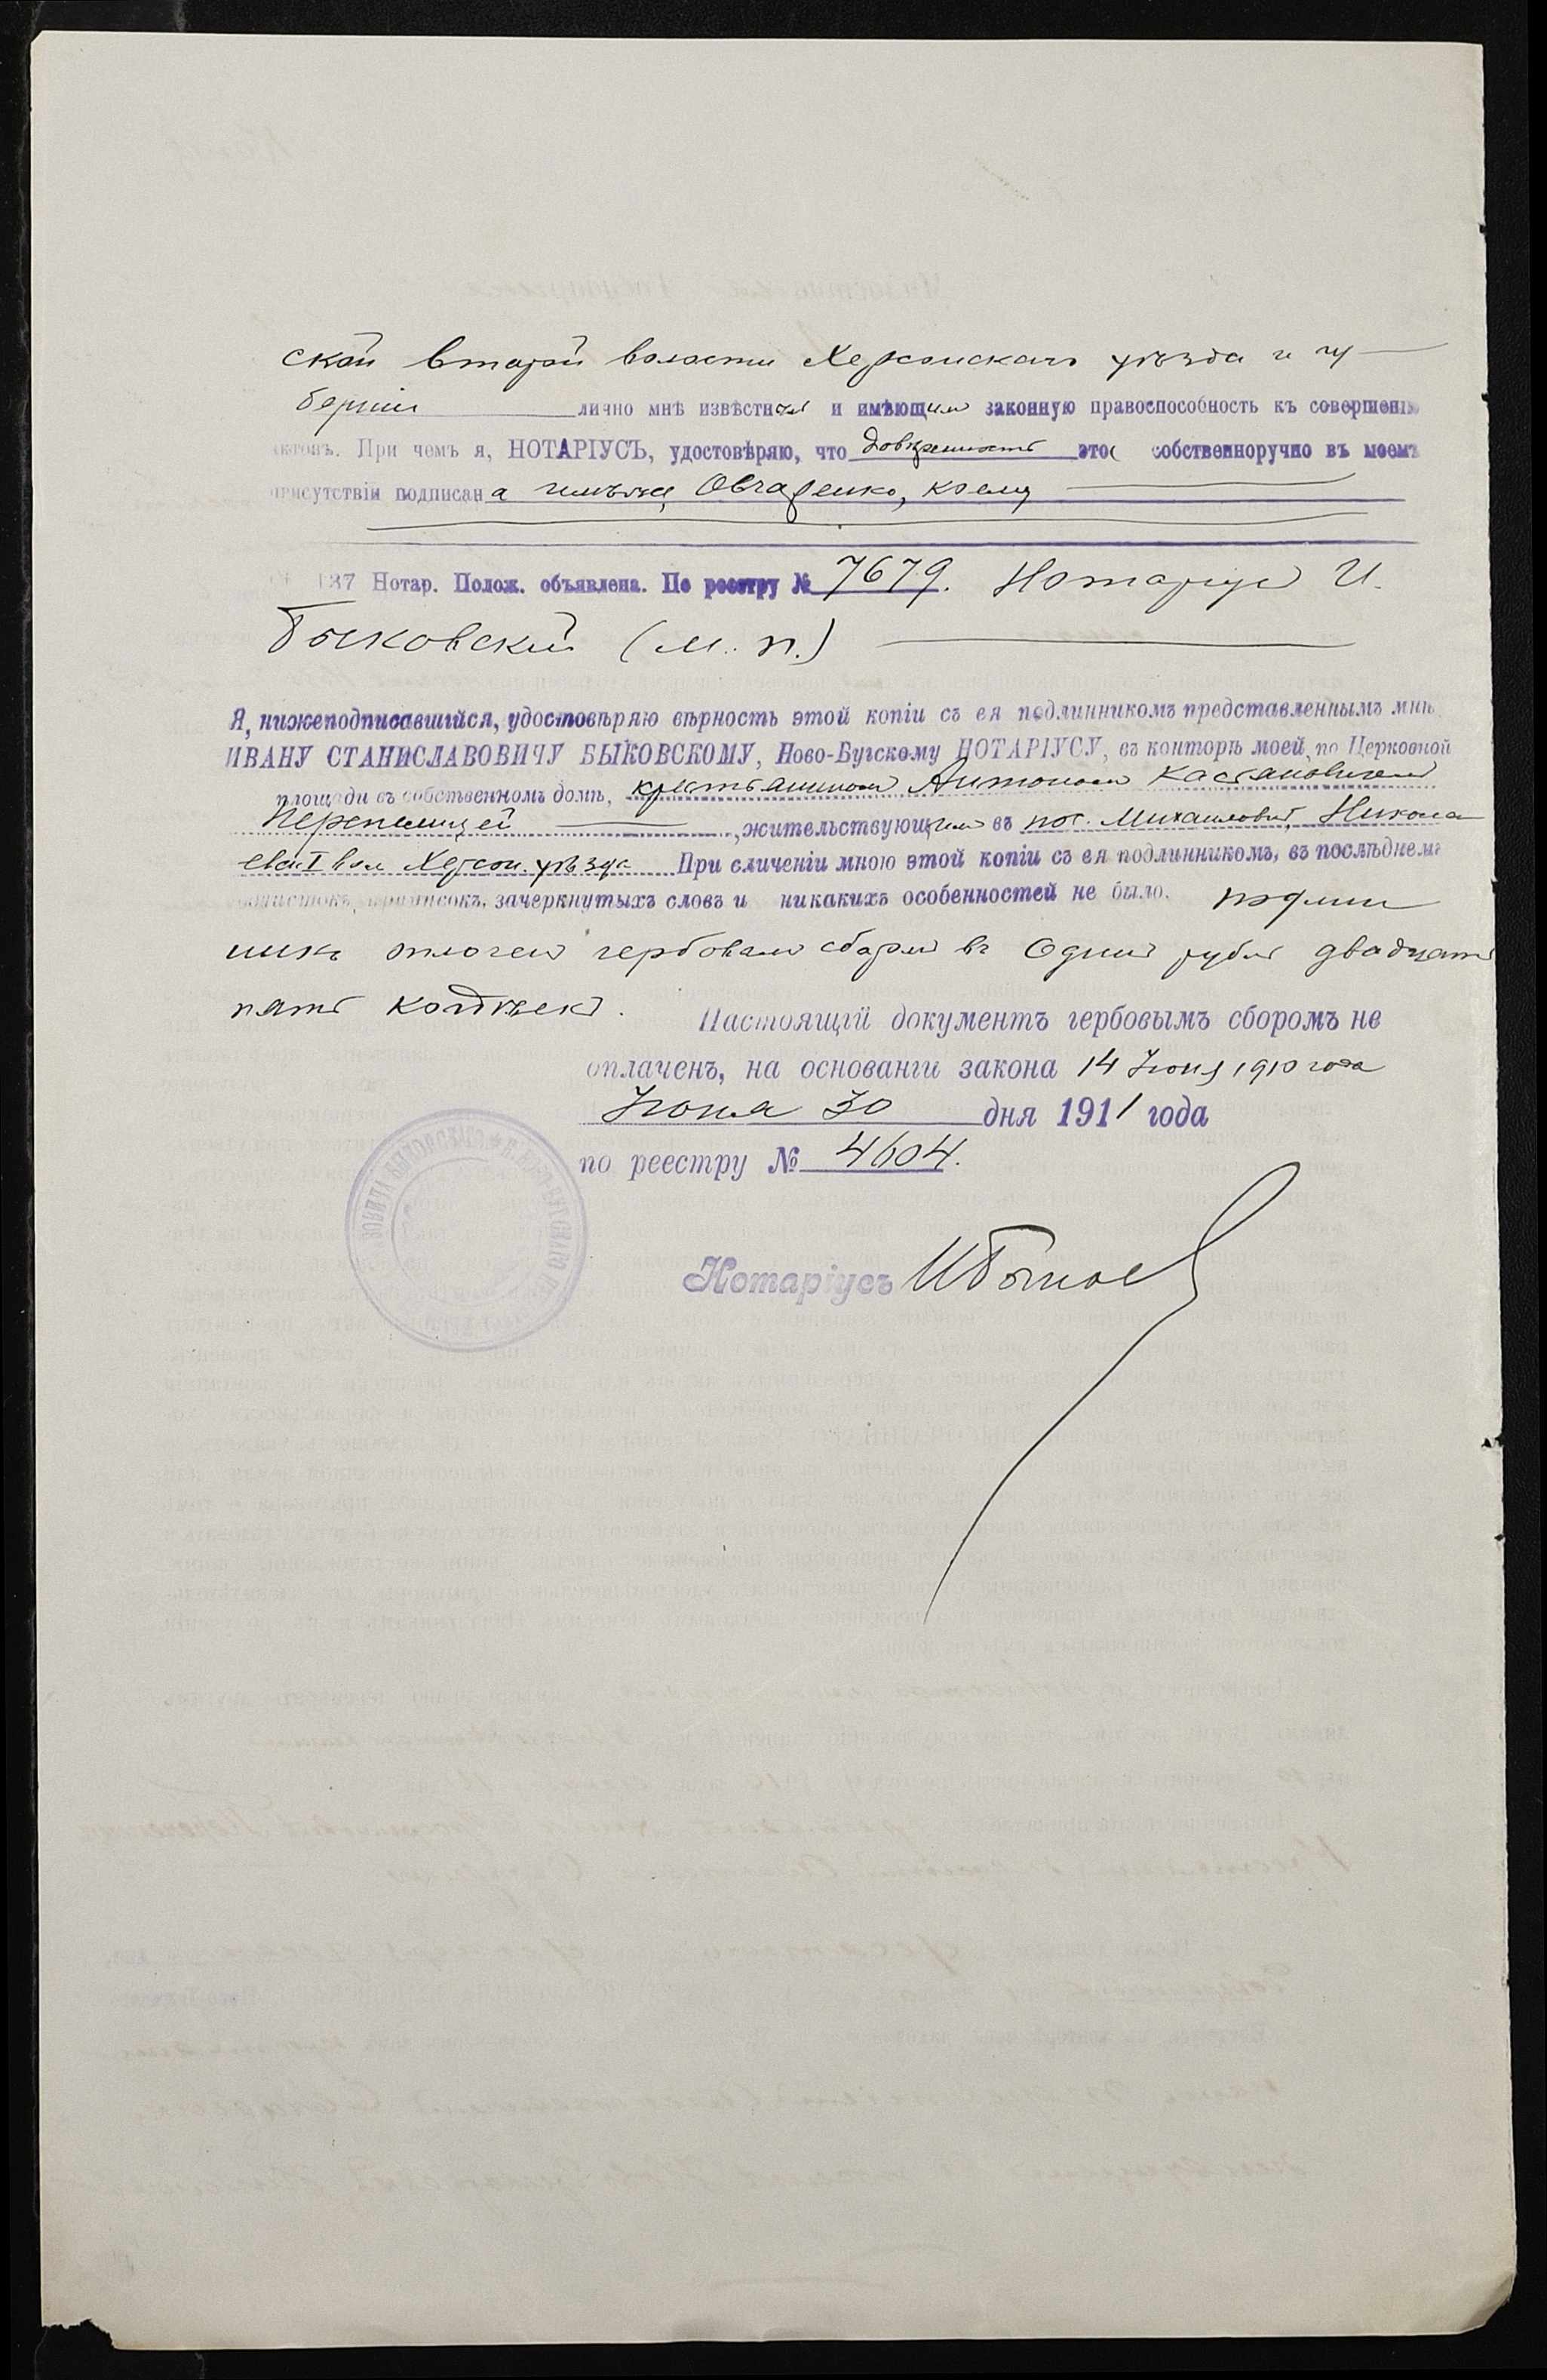 ской второй волости Херсонскаго уѣзда и гу-
берніи лично мнѣ извѣстным и имѣющим законную правоспособность къ совершенію
актовъ. При чемъ я, НОТАРІУСЪ, удостовѣряю, что довѣренность эта собственноручно въ моемъ
присутствіи подписана Овчаренко,
137 Нотар. Полож. объявлена. По реестру № 7679. Нотаріусъ И.
Быковскій (М. П.)
Я, нижеподписавшійся, удостовѣряю вѣрность этой копіи съ ея подлинникомъ представленнымъ мнѣ
ИВАНУ СТАНИСЛАВОВИЧУ БЫКОВСКОМУ, Ново-Бугскому НОТАРІУСУ, въ конторѣ моей, по Церковной
площади въ собственномъ домѣ, крестьяниномъ Антономъ Касьяновичемъ
Перепелицей, жительствующим въ пос. Михайловкѣ, Никола
евск. I вол. Херсон. уѣзда При сличеніи мною этой копіи съ ея подлинникомъ, въ послѣднемъ
подчистокъ, приписокъ, зачеркнутыхъ словъ и никакихъ особенностей не было. Подлин
никъ оплочен гербовым сбором въ один рубль двадцать
пять копѣекъ. Настоящій документъ гербовымъ сборомъ не
оплаченъ, на основаніи закона 14 Іюня 1910 года
Іюня 30 дня 1911 года
по реестру № 4604.
Нотаріусъ ИБыковс